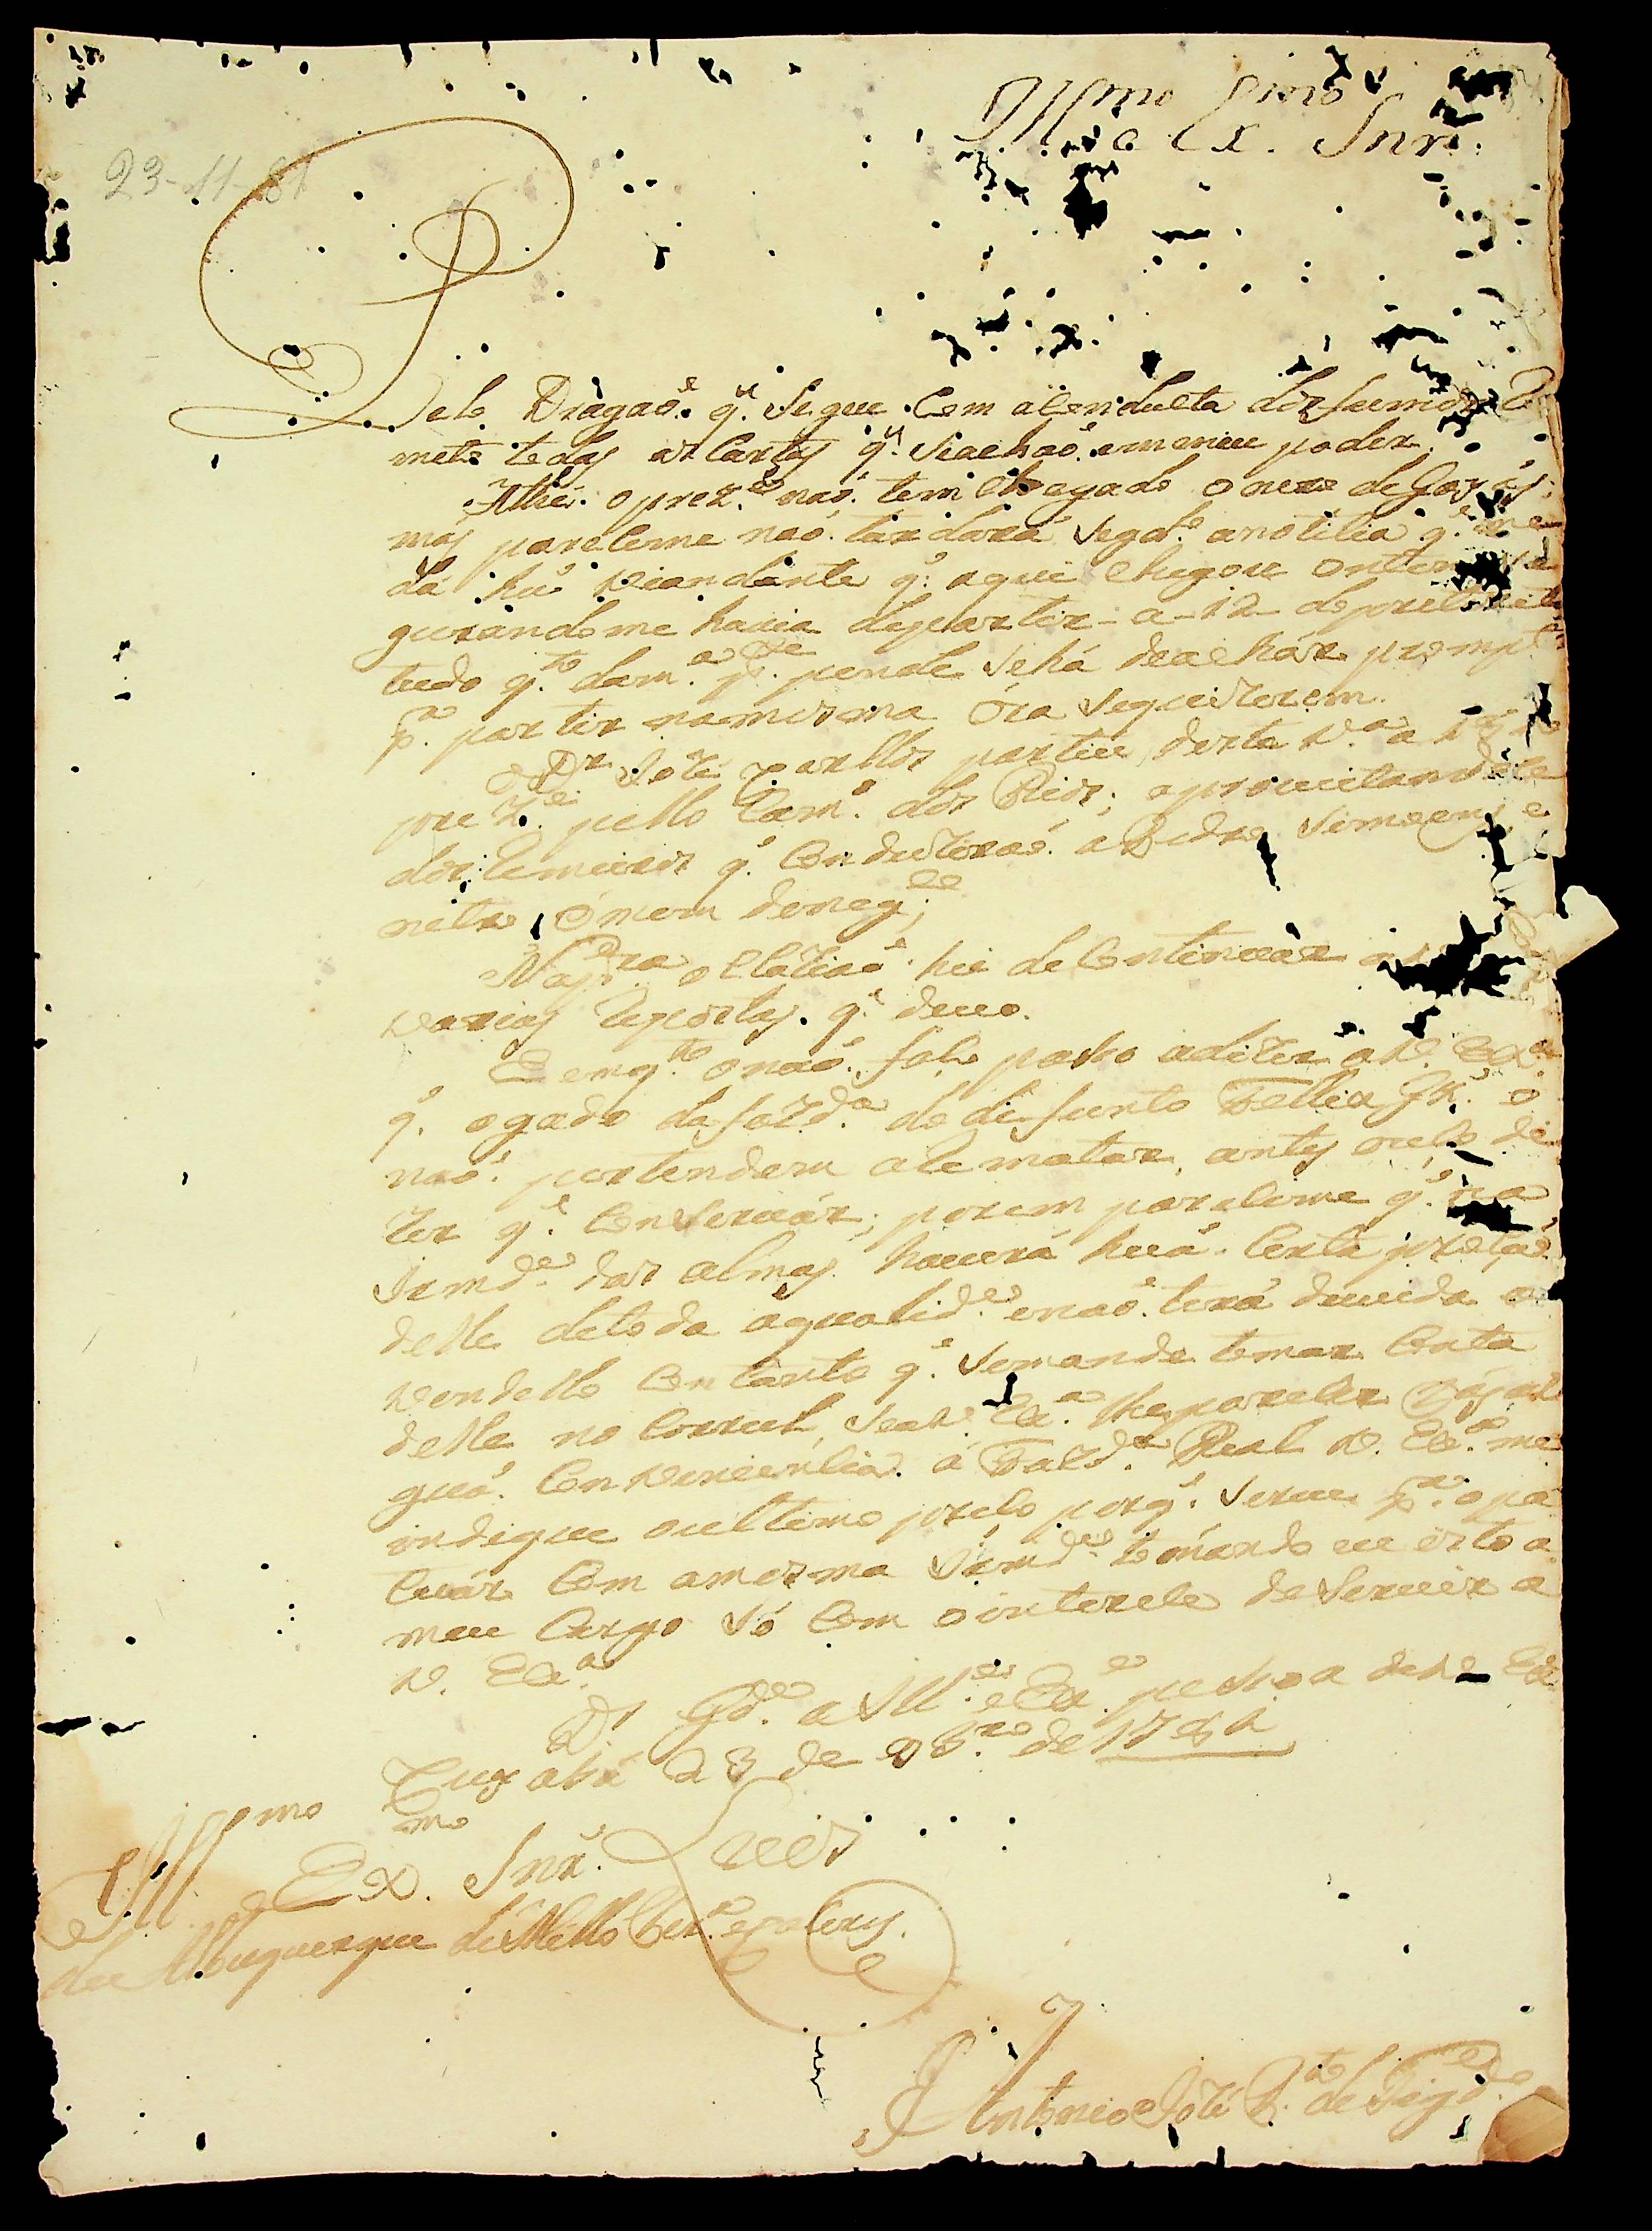 Illmo Exmo
e Ex. Snr.
23-11-81
Pelo Dragaõ. q. Segue Com aConducta dos
meto todas as Cartas q. Seachaõ. em meu poder.
Athé. oprez.e naõ. tem Chegado o de Goyás;
más pareceme naõ. tardará Segdo. anoticia q. me
dá hú Viandante q. aqui Chegou Ontem
gurandome havia departir - a - 12 - do
tudo q.to dam.a p.te pende Sehá deachár prompto
p.a partir namesma Óra
O Dr. Jozé Carllos partiu desta V.a a 15 do
prez.e pello Cam.o dos Rios; aproveitandose
dos q. Conduzeraó. a Pedro e
neto, ómem deneg.co
Nap.ra hei de Continuár
varias repostas. q. devo.
E emq.to onaõ. faço passo adizer a V. Ex.a
q. ogado da fazd.a do defunto Felliz o
naõ. pertendem aRematar, antes ouço di
zer q. Conservár; porem pareceme q. na
Irmd.e das almas haverá huá. Certa porçaõ
delle detoda aqualid.e enaõ. terá duvida a
vendello Contanto q. Semande tomar Conta
delle no Curral, SeaV. Ex.a lheparecer
guá. Conveniencia. á Fazd.a Real V. Ex.a me
indique oultimo preço porq. Serve p.a opa
ctuár Com amesma Irmd.e tomando eu isto a
meu Cargo Só Com ointerece deServir a
V. Ex.a
D.s Gd.e a Ill.e eEx.e pessoa deV. Ex
Cuyabá 23 de 9b.ro de 1781
Illmo
e Exmo. Snr. Luis
de Albuquerque deMello Per.a eCaceres.
Antonio Jozé P.to de Figd.o